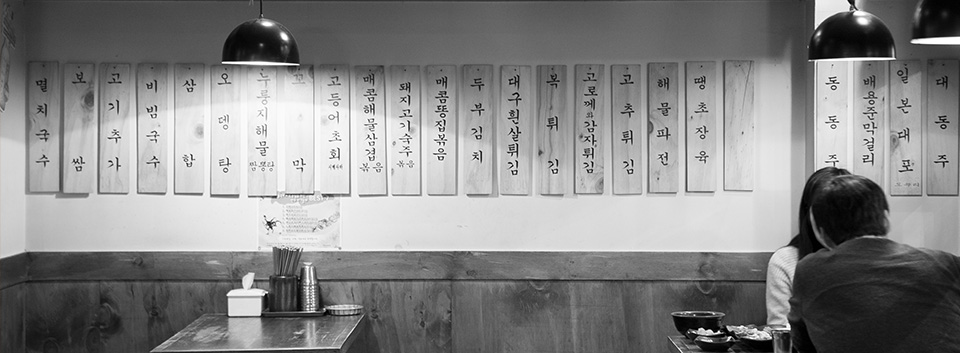 멸치국수
보쌈
고기추가
비빔국수
삼합
오뎅탕
누룽지해물
꼬막
고등어초회
매콤해물삼겹볶음
돼지고기숙주볶음
매콤똥집볶음
두부김치
대구흰살튀김
복튀김
고로께와감자튀김
고추튀김
해물파전
땡초장육
동동주
배용준막걸리
일본대포
대동주